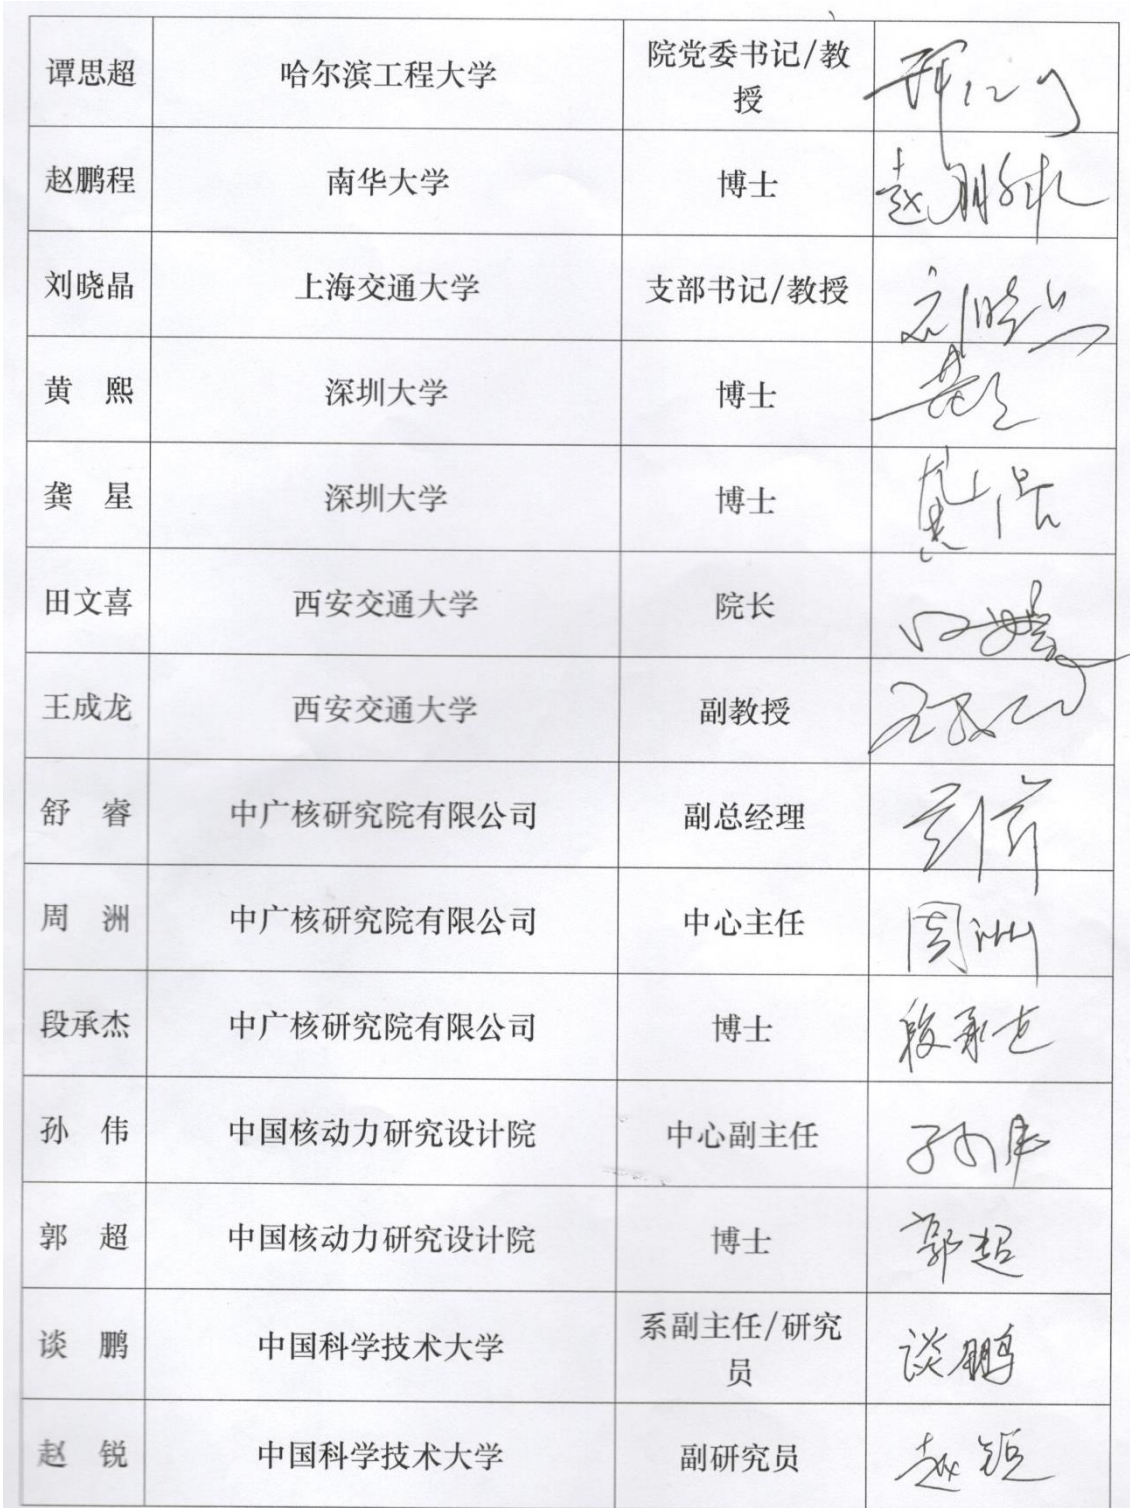 谭思超 哈尔滨工程大学 院党委书记/教
授
赵鹏程 南华大学 博士 赵鹏程
刘晓晶 上海交通大学 支部书记/教授 刘晓晶
黄 熙 深圳大学 博士
龚 星 深圳大学 博士
田文喜 西安交通大学 院长
王成龙 西安交通大学 副教授
舒 睿 中广核研究院有限公司 副总经理
周 洲 中广核研究院有限公司 中心主任 周洲
段承杰 中广核研究院有限公司 博士 段承杰
孙 伟 中国核动力研究设计院 中心副主任
郭 超 中国核动力研究设计院 博士 郭超
谈 鹏 中国科学技术大学 系副主任/研究
员 谈鹏
赵 锐 中国科学技术大学 副研究员 赵锐